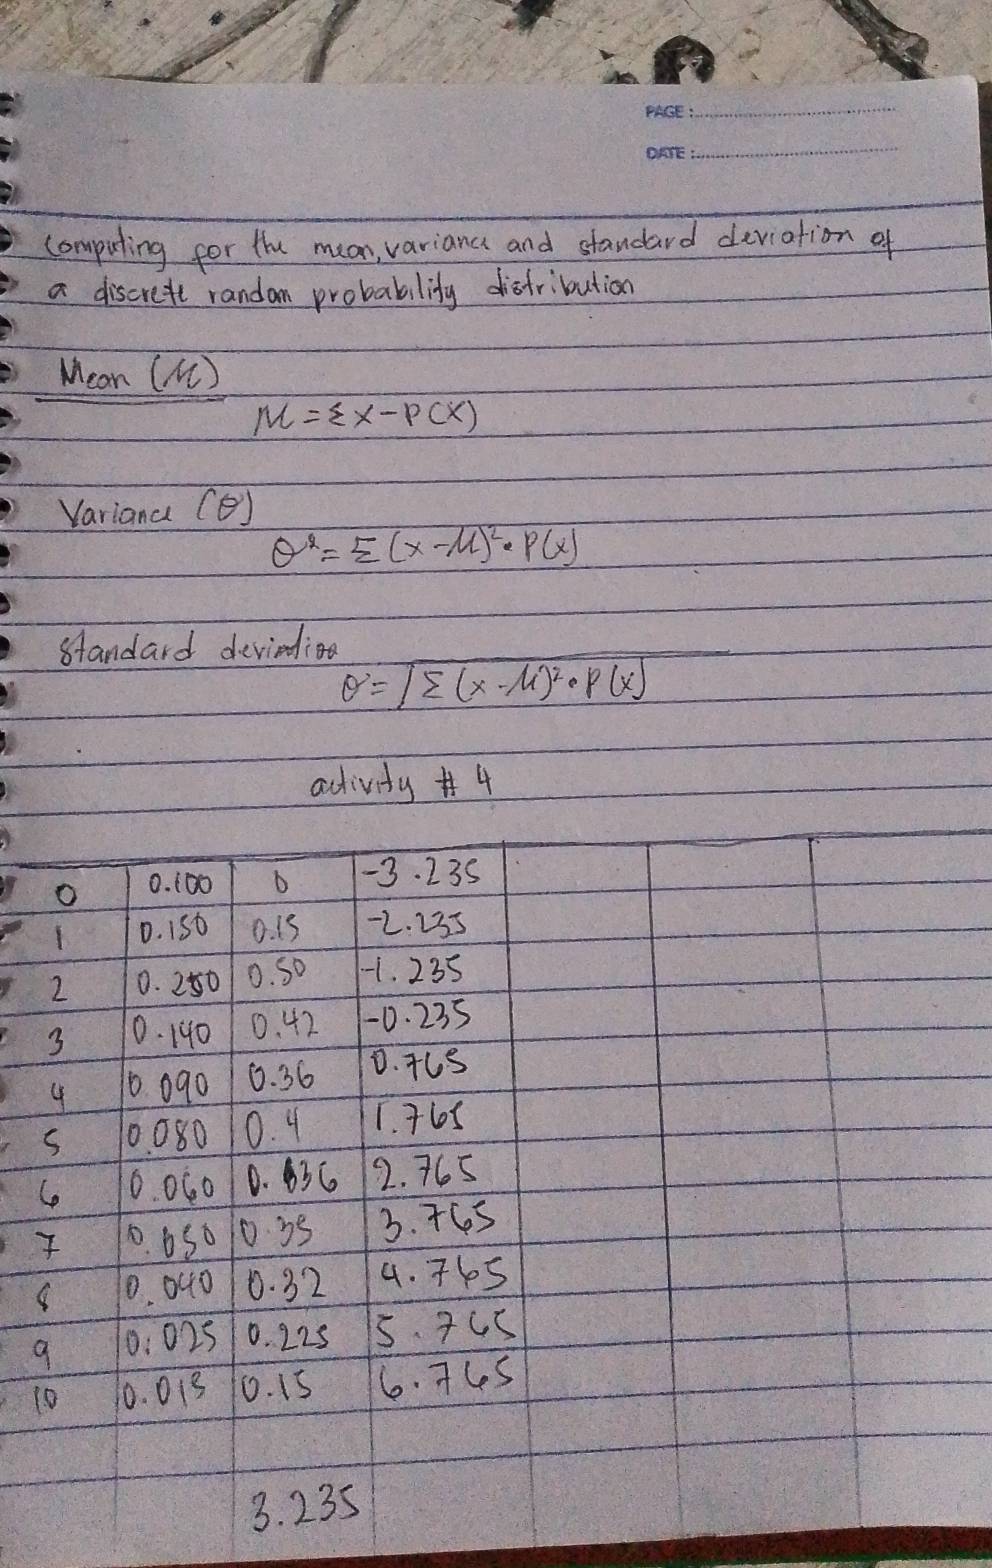 PAGE :
DATE :
computing for the mean, variance and standard deviation of
a discrete random probability distribution
Mean (M)
M = Σ X - P(X)
Variance (θ)
θ² = Σ (x - M)² • P(x)
Standard deviation
θ = √Σ (x - M)² • P(x)
activity # 4
0 0.100 0 -3.235
1 0.150 0.15 -2.235
2 0.250 0.50 -1.235
3 0.140 0.42 -0.235
4 0.090 0.36 0.765
5 0.080 0.4 1.765
6 0.060 0.36 2.765
7 0.050 0.35 3.765
8 0.040 0.32 4.765
9 0.025 0.225 5.765
10 0.015 0.15 6.765
3.235